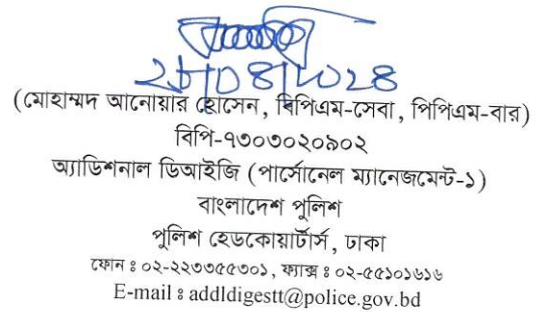 ২৮/০৪/২০২৪
(মোহাম্মদ আনোয়ার হোসেন, বিপিএম-সেবা, পিপিএম-বার)
বিপি-৭৩০৩০২০৯০২
অ্যাডিশনাল ডিআইজি (পার্সোনেল ম্যানেজমেন্ট-১)
বাংলাদেশ পুলিশ
পুলিশ হেডকোয়ার্টার্স, ঢাকা
ফোন ঃ ০২-২২৩৩৫৫৩০১, ফ্যাক্স ঃ ০২-৫৫১০১৬১৬
E-mail ঃ addldigestt@police.gov.bd